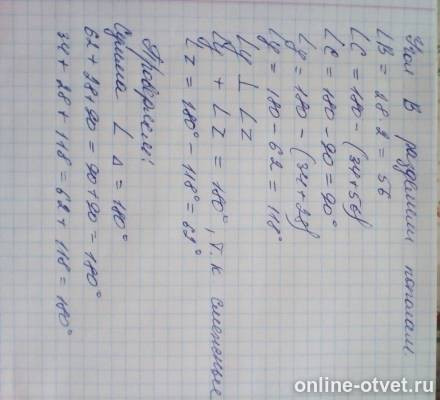 Угол В разделили пополам
∠B = 28·2 = 56
∠C = 180 - (34+56)
∠C = 180 - 90 = 90°
∠y = 180 - (34+28)
∠y = 180 - 62 = 118°
∠y ⊥ ∠Z
∠y + ∠Z = 180°, т.к смежные
∠Z = 180° - 118° = 62°
Проверяем:
Сумма ∠ Δ = 180°
62 + 28 + 90 = 90 + 90 = 180°
34 + 28 + 118 = 62 + 118 = 180°
online-otvet.ru